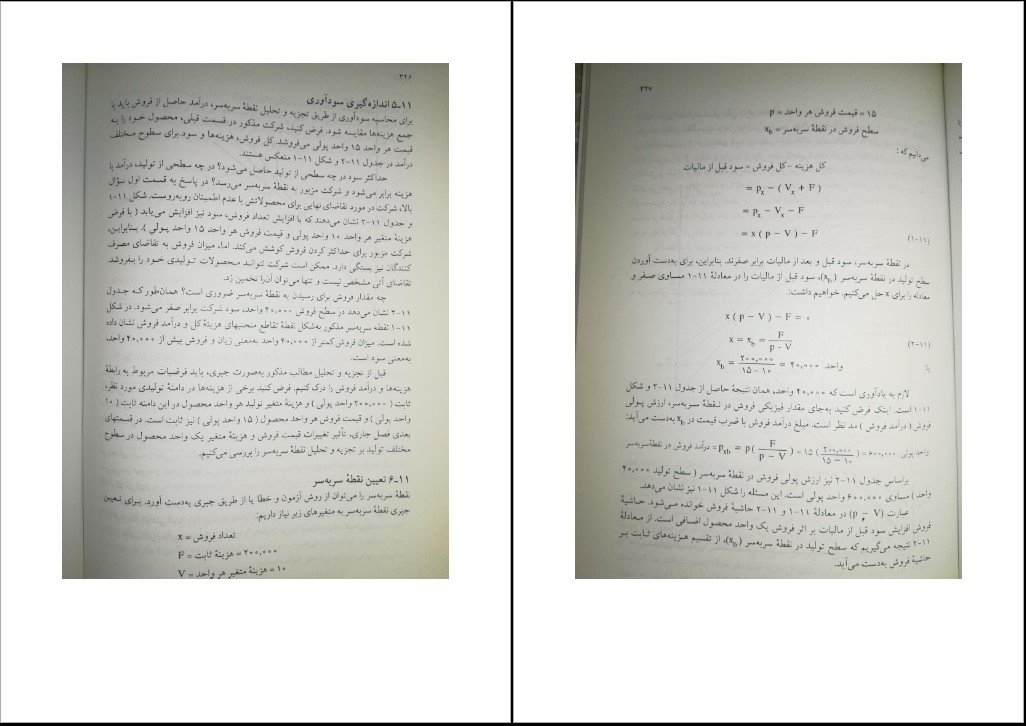 ۳۴۶
۱۱-۵ اندازه‌گیری سودآوری
برای محاسبه سودآوری از طریق تجزیه و تحلیل نقطهٔ سربه‌سر، درآمد حاصل از فروش باید با
جمع هزینه‌ها مقایسه شود. فرض کنید، شرکت مذکور در قسمت قبلی، محصول خود را به
قیمت هر واحد ۱۵ واحد پولی می‌فروشد. کل فروش، هزینه‌ها و سود برای سطوح مختلف
درآمد در جدول ۱۱-۲ و شکل ۱۱-۱ منعکس هستند.
حداکثر سود در چه سطحی از تولید حاصل می‌شود؟ در چه سطحی از تولید، درآمد با
هزینه برابر می‌شود و شرکت مزبور به نقطهٔ سربه‌سر می‌رسد؟ در پاسخ به قسمت اول سؤال
بالا، شرکت در مورد تقاضای نهایی برای محصولاتش با عدم اطمینان روبه‌روست. شکل ۱۱-۱
و جدول ۱۱-۲ نشان می‌دهند که با افزایش تعداد فروش، سود نیز افزایش می‌یابد ( با فرض
هزینهٔ متغیر هر واحد ۱۰ واحد پولی و قیمت فروش هر واحد ۱۵ واحد پولی ). بنابراین،
شرکت مزبور برای حداکثر کردن فروش کوشش می‌کند. اما، میزان فروش به تقاضای مصرف
کنندگان نیز بستگی دارد. ممکن است شرکت نتواند محصولات تولیدی خود را بفروشد.
تقاضای آتی مشخص نیست و تنها می‌توان آن‌را تخمین زد.
چه مقدار فروش برای رسیدن به نقطهٔ سربه‌سر ضروری است؟ همان‌طور که جدول
۱۱-۲ نشان می‌دهد در سطح فروش ۴۰,۰۰۰ واحد، سود شرکت برابر صفر می‌شود. در شکل
۱۱-۱ نقطه سربه‌سر مذکور به‌شکل نقطهٔ تقاطع منحنیهای هزینهٔ کل و درآمد فروش نشان داده
شده است. میزان فروش کمتر از ۴۰,۰۰۰ واحد به‌معنی زیان و فروش بیش از ۴۰,۰۰۰ واحد،
به‌معنی سود است.
قبل از تجزیه و تحلیل مطالب مذکور به‌صورت جبری، باید فرضیات مربوط به رابطهٔ
هزینه‌ها و درآمد فروش را درک کنیم. فرض کنید برخی از هزینه‌ها در دامنهٔ تولیدی مورد نظر،
ثابت ( ۲۰۰,۰۰۰ واحد پولی ) و هزینهٔ متغیر تولید هر واحد محصول در این دامنه ثابت ( ۱۰
واحد پولی ) و قیمت فروش هر واحد محصول ( ۱۵ واحد پولی ) نیز ثابت است. در قسمتهای
بعدی فصل جاری، تأثیر تغییرات قیمت فروش و هزینهٔ متغیر یک واحد محصول در سطوح
مختلف تولید بر تجزیه و تحلیل نقطهٔ سربه‌سر را بررسی می‌کنیم.
۱۱-۶ تعیین نقطهٔ سربه‌سر
نقطهٔ سربه‌سر را می‌توان از روش آزمون و خطا یا از طریق جبری به‌دست آورد. برای تعیین
جبری نقطهٔ سربه‌سر به متغیرهای زیر نیاز داریم:
تعداد فروش = x
۲۰۰,۰۰۰ = هزینهٔ ثابت = F
۱۰ = هزینهٔ متغیر هر واحد = V
۳۴۷
۱۵ = قیمت فروش هر واحد = p
سطح فروش در نقطهٔ سربه‌سر = x_b
می‌دانیم که :
کل هزینه - کل فروش = سود قبل از مالیات
= p_x − ( V_x + F )
= p_x − V_x − F
= x ( p − V ) − F (۱۱-۱)
در نقطهٔ سربه‌سر، سود قبل و بعد از مالیات برابر صفرند. بنابراین، برای به‌دست آوردن
سطح تولید در نقطهٔ سربه‌سر (x_b)، سود قبل از مالیات را در معادلهٔ ۱۱-۱ مساوی صفر و
معادله را برای x حل می‌کنیم. خواهیم داشت:
x ( p − V ) − F = ۰
x = x_b = F / (p - V) (۱۱-۲)
یا: x_b = ۲۰۰,۰۰۰ / (۱۵ - ۱۰) = ۴۰,۰۰۰ واحد
لازم به یادآوری است که ۴۰,۰۰۰ واحد، همان نتیجهٔ حاصل از جدول ۱۱-۲ و شکل
۱۱-۱ است. اینک فرض کنید به‌جای مقدار فیزیکی فروش در نقطهٔ سربه‌سر، ارزش پولی
فروش ( درآمد فروش ) مد نظر است. مبلغ درآمد فروش با ضرب قیمت در x_b به‌دست می‌آید:
درآمد فروش در نقطهٔ سربه‌سر = p_xb = p( F / (p − V) ) = ۱۵ ( ۲۰۰,۰۰۰ / (۱۵ - ۱۰) ) = ۶۰۰,۰۰۰ واحد پولی
براساس جدول ۱۱-۲ نیز ارزش پولی فروش در نقطهٔ سربه‌سر ( سطح تولید ۴۰,۰۰۰
واحد ) مساوی ۶۰۰,۰۰۰ واحد پولی است. این مسئله را شکل ۱۱-۱ نیز نشان می‌دهد.
عبارت (p − V) در معادلهٔ ۱۱-۱ و ۱۱-۲ حاشیهٔ فروش خوانده می‌شود. حاشیهٔ
فروش افزایش سود قبل از مالیات بر اثر فروش یک واحد محصول اضافی است. از معادلهٔ
۱۱-۲ نتیجه می‌گیریم که سطح تولید در نقطهٔ سربه‌سر (x_b)، از تقسیم هزینه‌های ثابت بر
حاشیهٔ فروش به‌دست می‌آید.